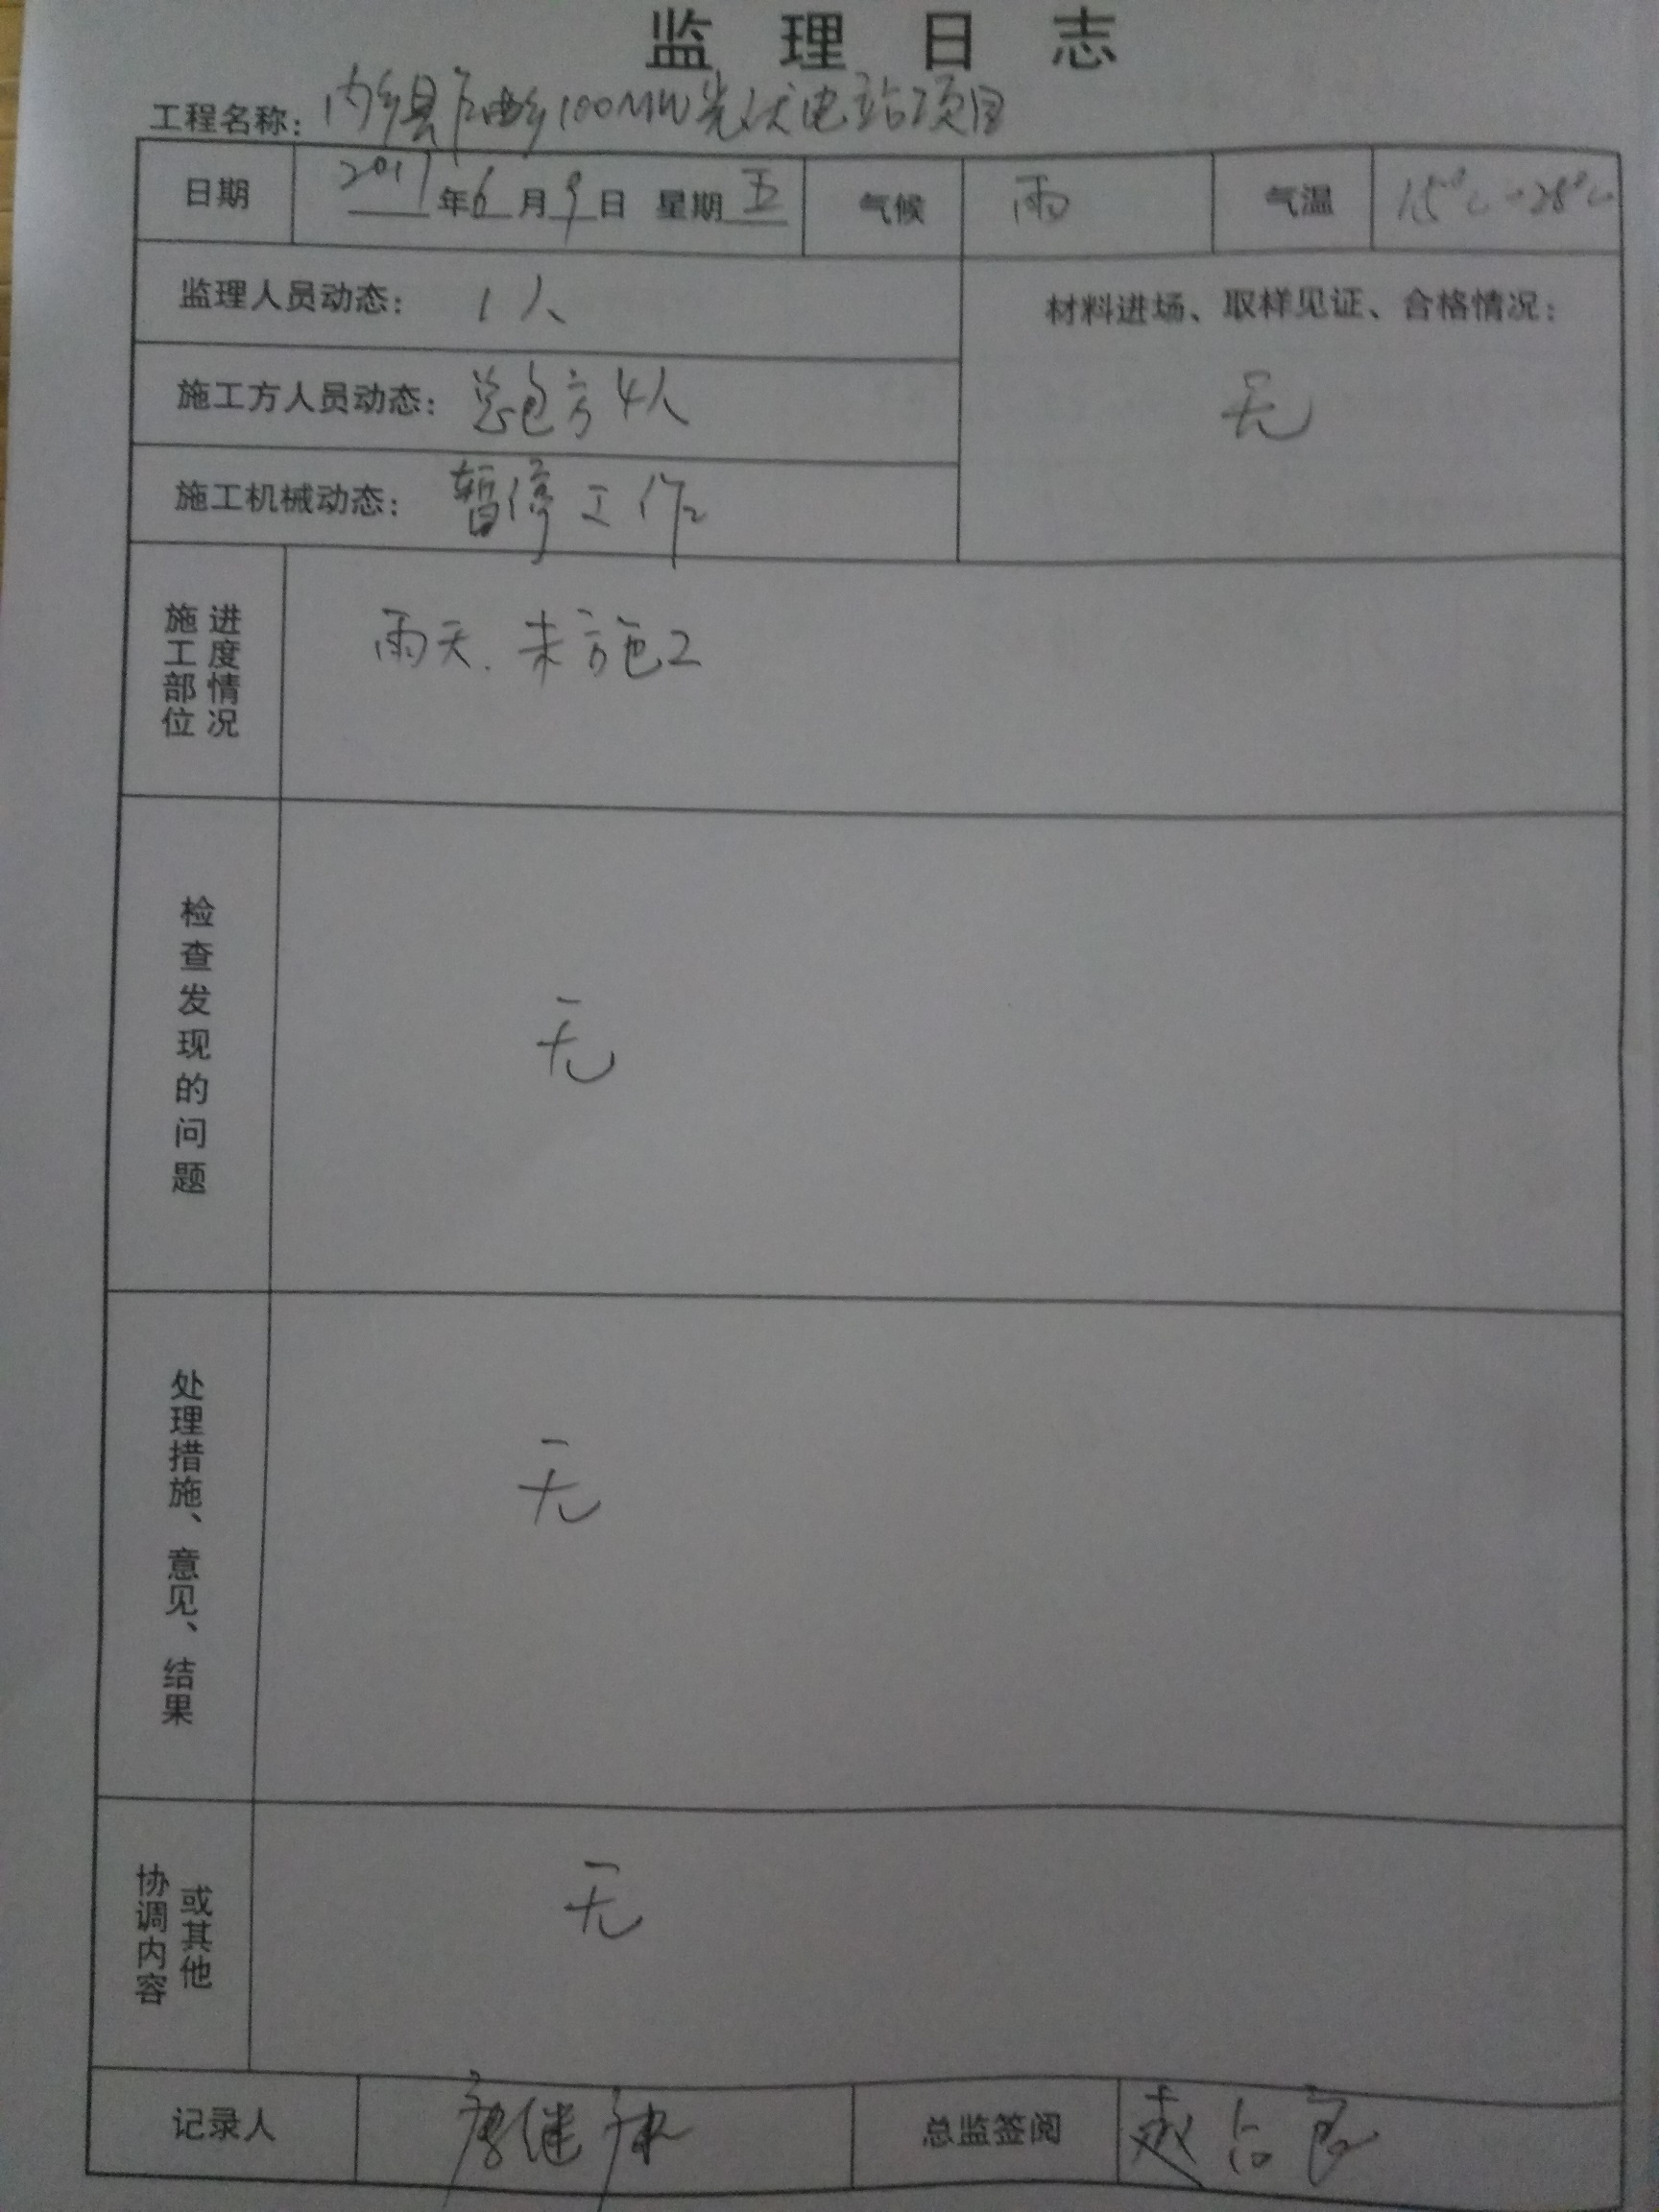 监理日志
工程名称：内乡县乍曲乡100MW光伏电站项目
日期 2017年6月9日 星期五 气候 雨 气温 15℃-28℃
监理人员动态：1人
材料进场、取样见证、合格情况：
无
施工方人员动态：总包方4人
施工机械动态：暂停工作
施工部位
进度情况
雨天.未施工
检查发现的问题
无
处理措施、意见、结果
无
协调内容
或其他
无
记录人 唐继 总监签阅 赵占